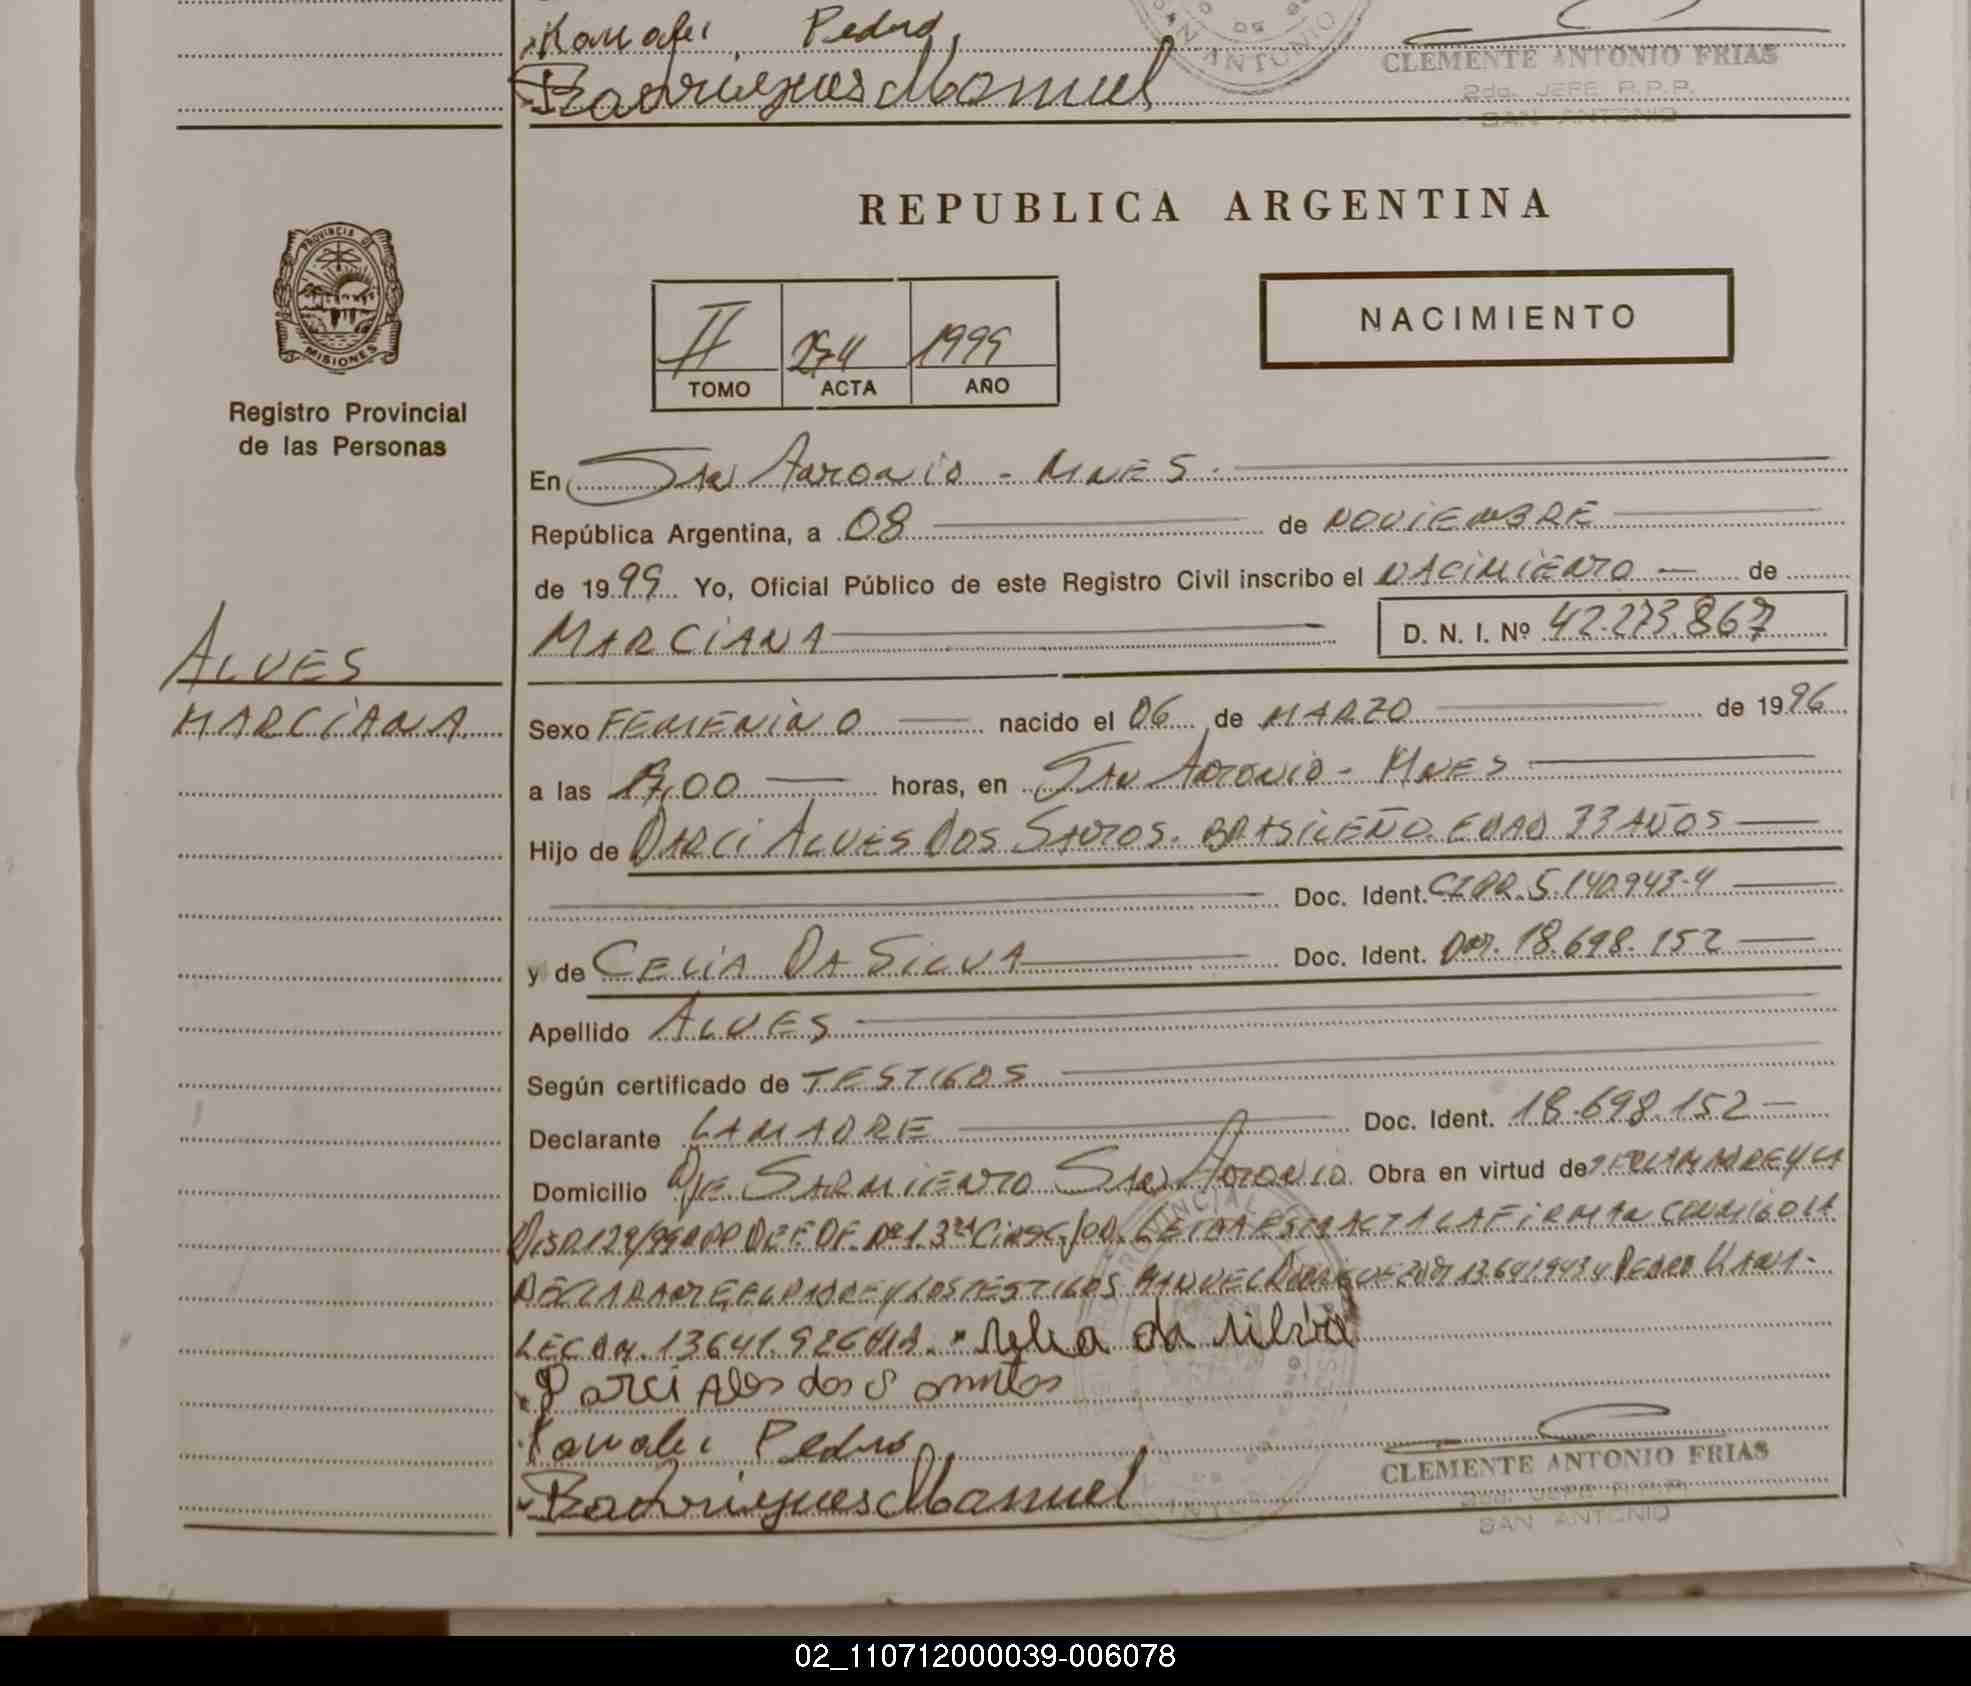 Kowalei Pedro
Rodrigues Manuel
CLEMENTE ANTONIO FRIAS
2do. JEFE R.P.P.
SAN ANTONIO
REPUBLICA ARGENTINA
PROVINCIA DE
MISIONES
Registro Provincial
de las Personas
II 274 1999
TOMO ACTA AÑO
NACIMIENTO
En San Antonio - Mnes.
República Argentina, a 08 de NOVIEMBRE
de 1999 Yo, Oficial Público de este Registro Civil inscribo el NACIMIENTO de
MARCIANA D. N. I. Nº 42.273.867
ALVES
MARCIANA
Sexo FEMENINO nacido el 06 de MARZO de 1996
a las 17,00 horas, en SAN ANTONIO - MNES
Hijo de DARCI ALVES DOS SANTOS. BRASILEÑO. EDAD 33 AÑOS
Doc. Ident. CIPR. 5.140.943-4
y de CELIA DA SILVA Doc. Ident. DNI. 18.698.152
Apellido ALVES
Según certificado de TESTIGOS
Declarante LA MADRE Doc. Ident. 18.698.152
Domicilio SARMIENTO SAN ANTONIO Obra en virtud de SER LA MADRE Y LA
LEIDA ESTA ACTA LA FIRMAN CONMIGO LA
DECLARANTE EL PADRE Y LOS TESTIGOS MANUEL RODRIGUEZ DNI 13641943 y PEDRO KAWA-
LEC DNI. 13641.926 celia da silva
Darci Alves dos Santos
Kowalei Pedro
Rodrigues Manuel
CLEMENTE ANTONIO FRIAS
2do. JEFE R.P.P.
SAN ANTONIO
02_110712000039-006078